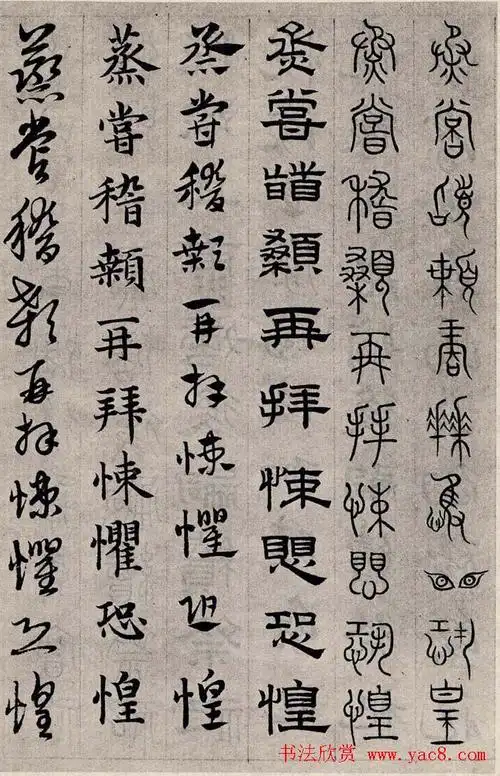 烝嘗稽顙再拜悚懼恐惶
烝嘗稽顙再拜悚愳恐惶
烝嘗稽顙再拜悚愳恐惶
烝嘗稽顙再拜悚懼恐惶
蒸嘗稽顙再拜悚懼恐惶
蒸嘗稽顙再拜悚懼恐惶
书法欣赏 www.yac8.com